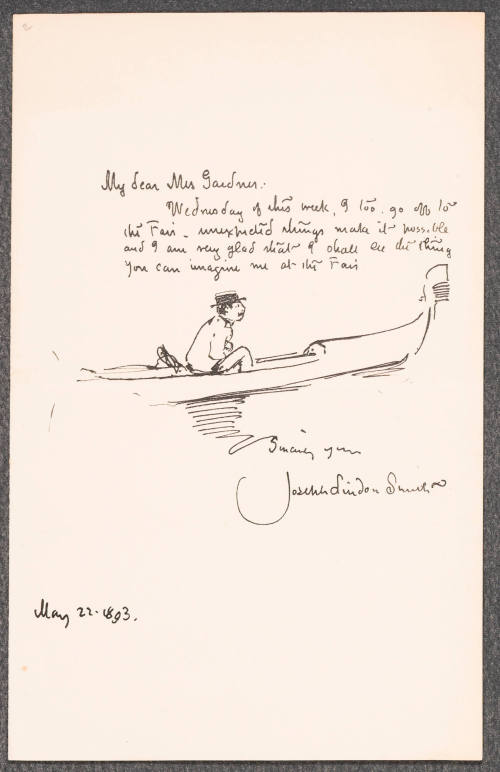 My dear Mrs Gardner:
Wednesday of this week, I too, go off to
the Fair - unexpected things make it possible
and I am very glad that I shall see the thing
You can imagine me at the Fair
Sincerely yours
Joseph Lindon Smith
May 22 - 1893.